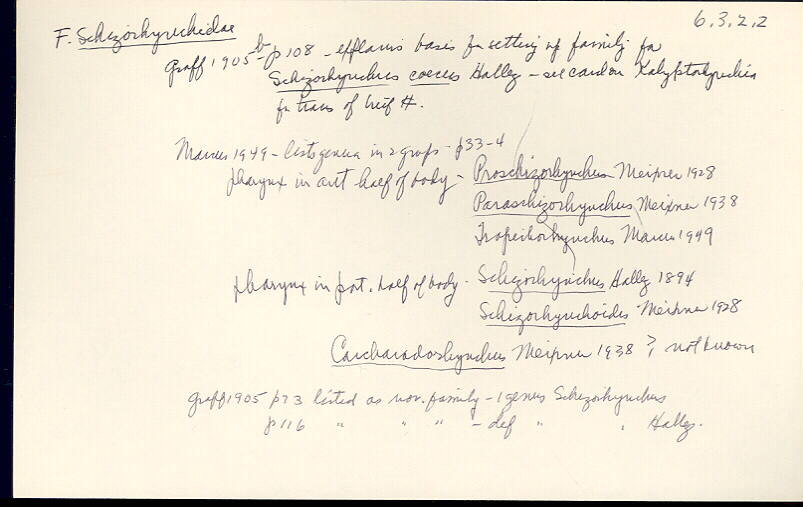 6.3.2.2
F. Schizorhynchidae
Graff 1905 b p 108 - explains basis for setting up family for
Schizorhynchus coecus Hallez - see card on Kalyptorhynchia
for trans of brief #.
Marcus 1949 - lists genera in 2 groups - p33-4
pharynx in ant half of body - Proschizorhynchus Meixner 1928
Paraschizorhynchus Meixner 1938
Trapeihorhynchus Marcus 1949
pharynx in post. half of body - Schizorhynchus Hallez 1894
Schizorhynchoides Meixner 1928
Carcharodorhynchus Meixner 1938 ?, not known
Graff 1905 p73 listed as nov. family - 1 genus Schizorhynchus
p116 " " " - def " " Hallez.